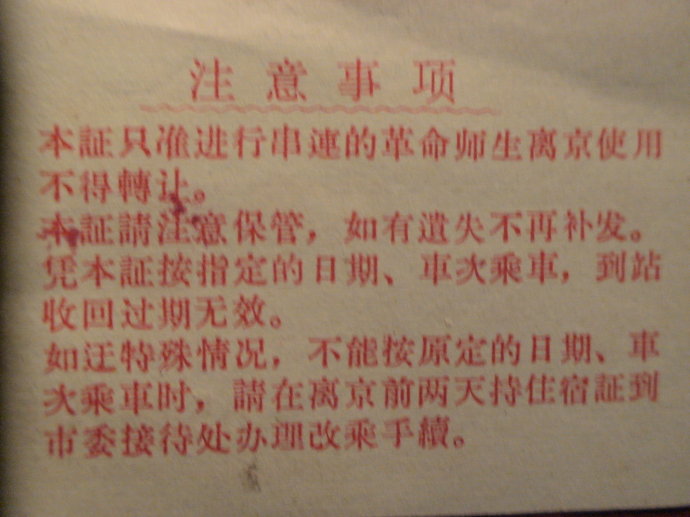 注意事项
本証只准进行串連的革命师生离京使用
不得轉让。
本証請注意保管，如有遺失不再补发。
凭本証按指定的日期、車次乘車，到站
收回过期无效。
如迂特殊情况，不能按原定的日期、車
次乘車时，請在离京前两天持住宿証到
市委接待处办理改乘手續。